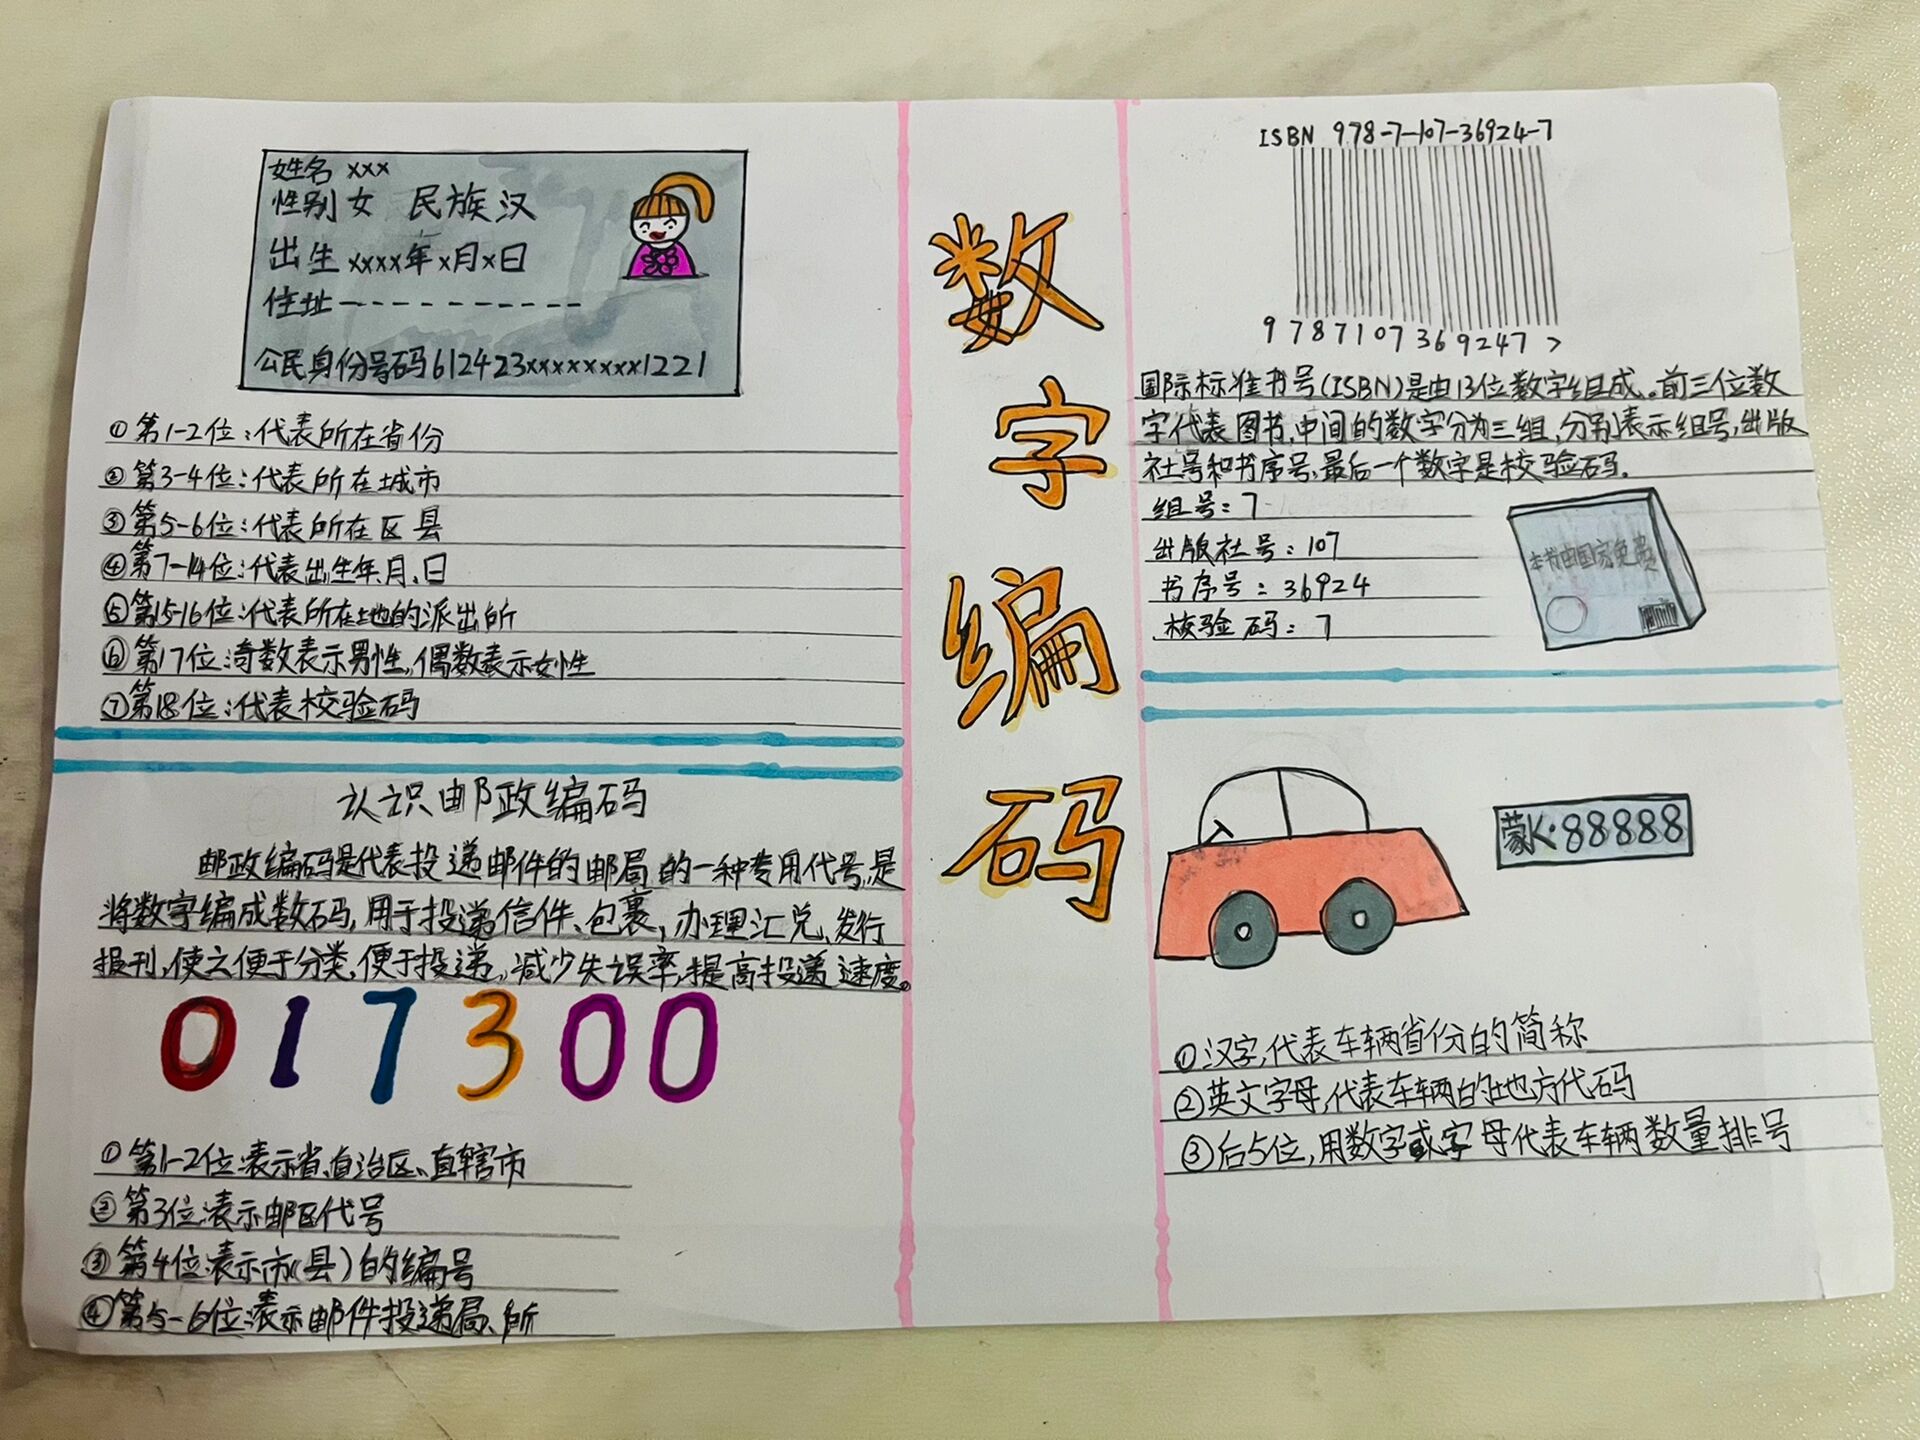 姓名 xxx
性别 女 民族 汉
出生 xxxx年x月x日
住址----------
公民身份号码612423xxxxxxxxx1221
①第1-2位:代表所在省份
②第3-4位:代表所在城市
③第5-6位:代表所在区县
④第7-14位:代表出生年、月、日
⑤第15-16位:代表所在地的派出所
⑥第17位:奇数表示男性,偶数表示女性
⑦第18位:代表校验码
认识邮政编码
邮政编码是代表投递邮件的邮局的一种专用代号,是
将数字编成数码,用于投递信件、包裹,办理汇兑、发行
报刊,使之便于分类,便于投递,减少失误率,提高投递速度。
017300
①第1-2位:表示省、自治区、直辖市
②第3位:表示邮区代号
③第4位:表示市(县)的编号
④第5-6位:表示邮件投递局、所
数字编码
ISBN 978-7-107-36924-7
9787107369247>
国际标准书号(ISBN)是由13位数字组成。前三位数
字代表图书,中间的数字分为三组,分别表示组号,出版
社号和书序号,最后一个数字是校验码。
组号:7
出版社号:107
书序号:36924
校验码:7
本书由国家免费
蒙K·88888
①汉字,代表车辆省份的简称
②英文字母,代表车辆的地方代码
③后5位,用数字或字母代表车辆数量排号